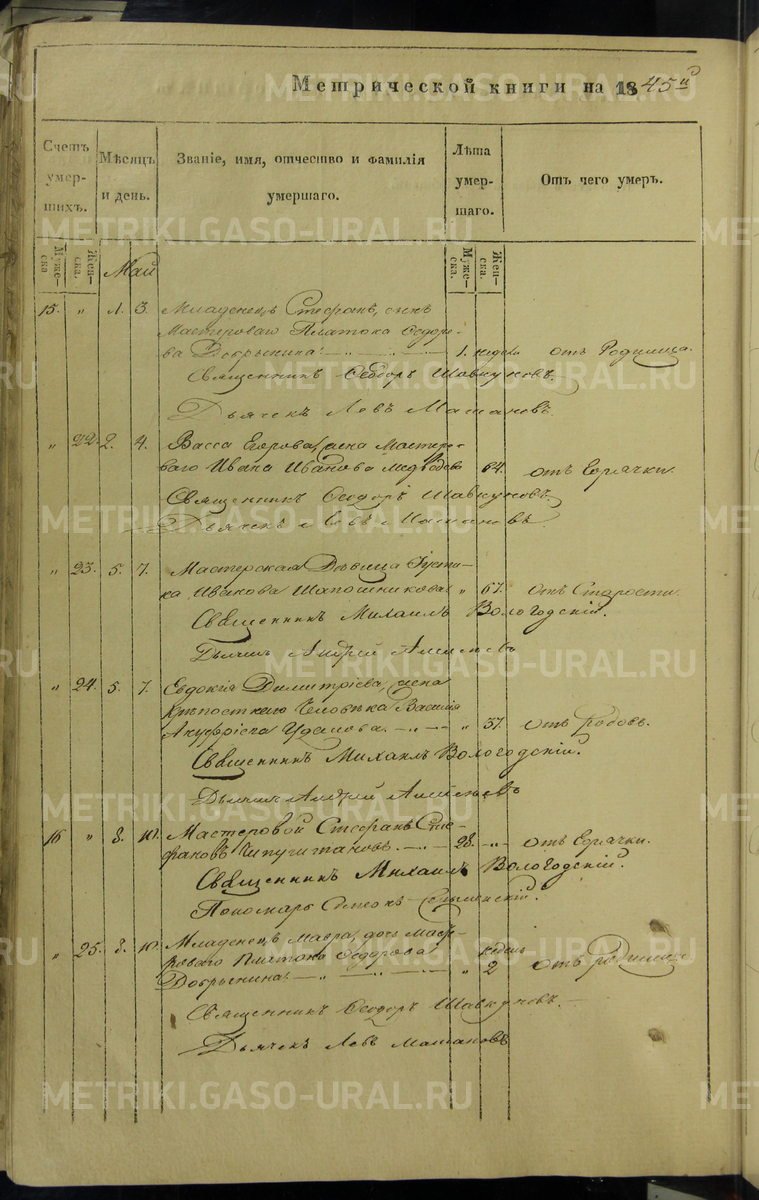 Метрической книги на 1845й
Счетъ умершихъ.
Мѣсяцъ и день.
Званіе, имя, отчество и фамилія умершаго.
Лѣта умершаго.
Отъ чего умеръ.
Мужеска
Женска.
Май
Мужеска.
Женска.
15. " 1. 3. Младенецъ Стефанъ, сынъ
Мастероваго Платона Ѳедоро-
ва Добрынина 1. недель отъ Родимца.
Священникъ Ѳеодоръ Шавкуновъ.
Дьячекъ Левъ Машановъ.
" 22. 2. 4. Васса Егорова, жена Мастеро-
ваго Ивана Иванова Медведева 64. отъ Горячки.
Священникъ Ѳеодоръ Шавкуновъ
Дьячекъ Левъ Машановъ.
" 23. 5. 7. Мастерская Дѣвица Густи-
на Иванова Шапошникова " 67. отъ Старости.
Священникъ Михаилъ Вологодскій.
Дьячекъ Андрей
" 24. 5. 7. Евдокія Димитріева, жена
Крѣпостнаго Человѣка Василія
" 37. отъ родовъ.
Священникъ Михаилъ Вологодскій.
Дьячекъ Андрей
16 " 8. 10. Мастеровой Стефанъ Сте-
фановъ 28. отъ Горячки.
Священникъ Михаилъ Вологодскій.
Пономарь
" 25. 8. 10. Младенецъ Мавра, дочь Масте-
роваго Платона Ѳедорова недель
Добрынина " 2 отъ родимца
Священникъ Ѳеодоръ Шавкуновъ.
Дьячекъ Левъ Машановъ
METRIKI.GASO-URAL.RU